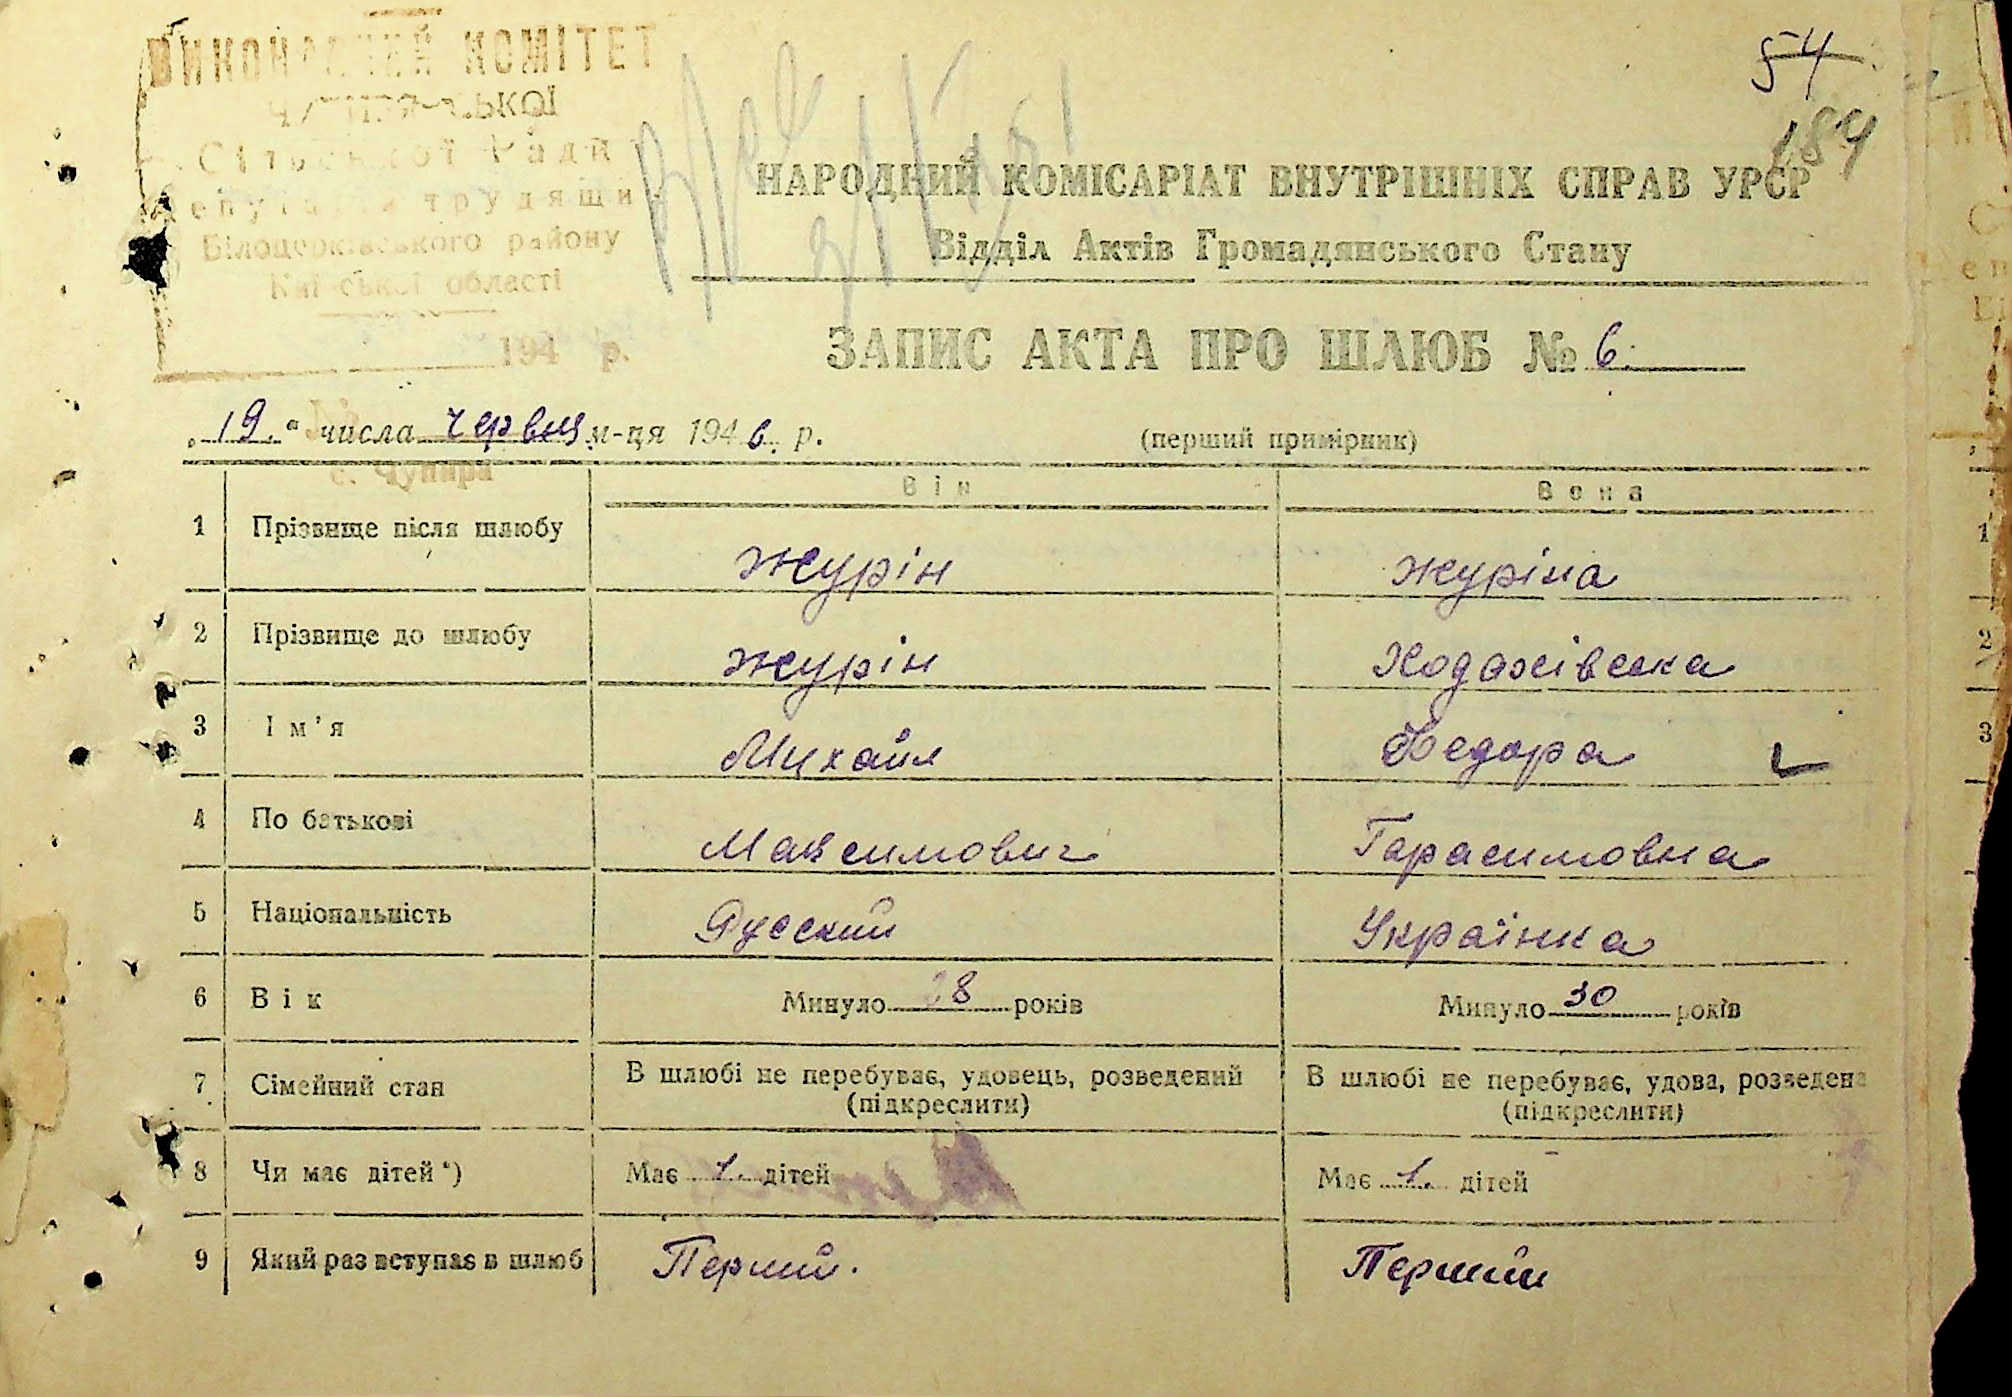 ВИКОНАВЧИЙ КОМІТЕТ
Сільської Ради
депутатів трудящих
Білоцерківського району
Київської області
194 р.
54
184
НАРОДНИЙ КОМІСАРІАТ ВНУТРІШНІХ СПРАВ УРСР
Відділ Актів Громадянського Стану
ЗАПИС АКТА ПРО ШЛЮБ № 6.
„19." числа червця м-ця 1946. р.
(перший примірник)
с. Чупира
Він Вона
1 Прізвище після шлюбу Журін Журіна
2 Прізвище до шлюбу Журін Ходаківська
3 Ім'я Михайл Федора
4 По батькові Максимович Гарасимовна
5 Національність Русский Українка
6 Вік Минуло 28 років Минуло 30 років
7 Сімейний стан В шлюбі не перебуває, удовець, розведений (підкреслити) В шлюбі не перебуває, удова, розведена (підкреслити)
8 Чи має дітей*) Має 1. дітей Має 1. дітей
9 Який раз вступає в шлюб Перший. Перший